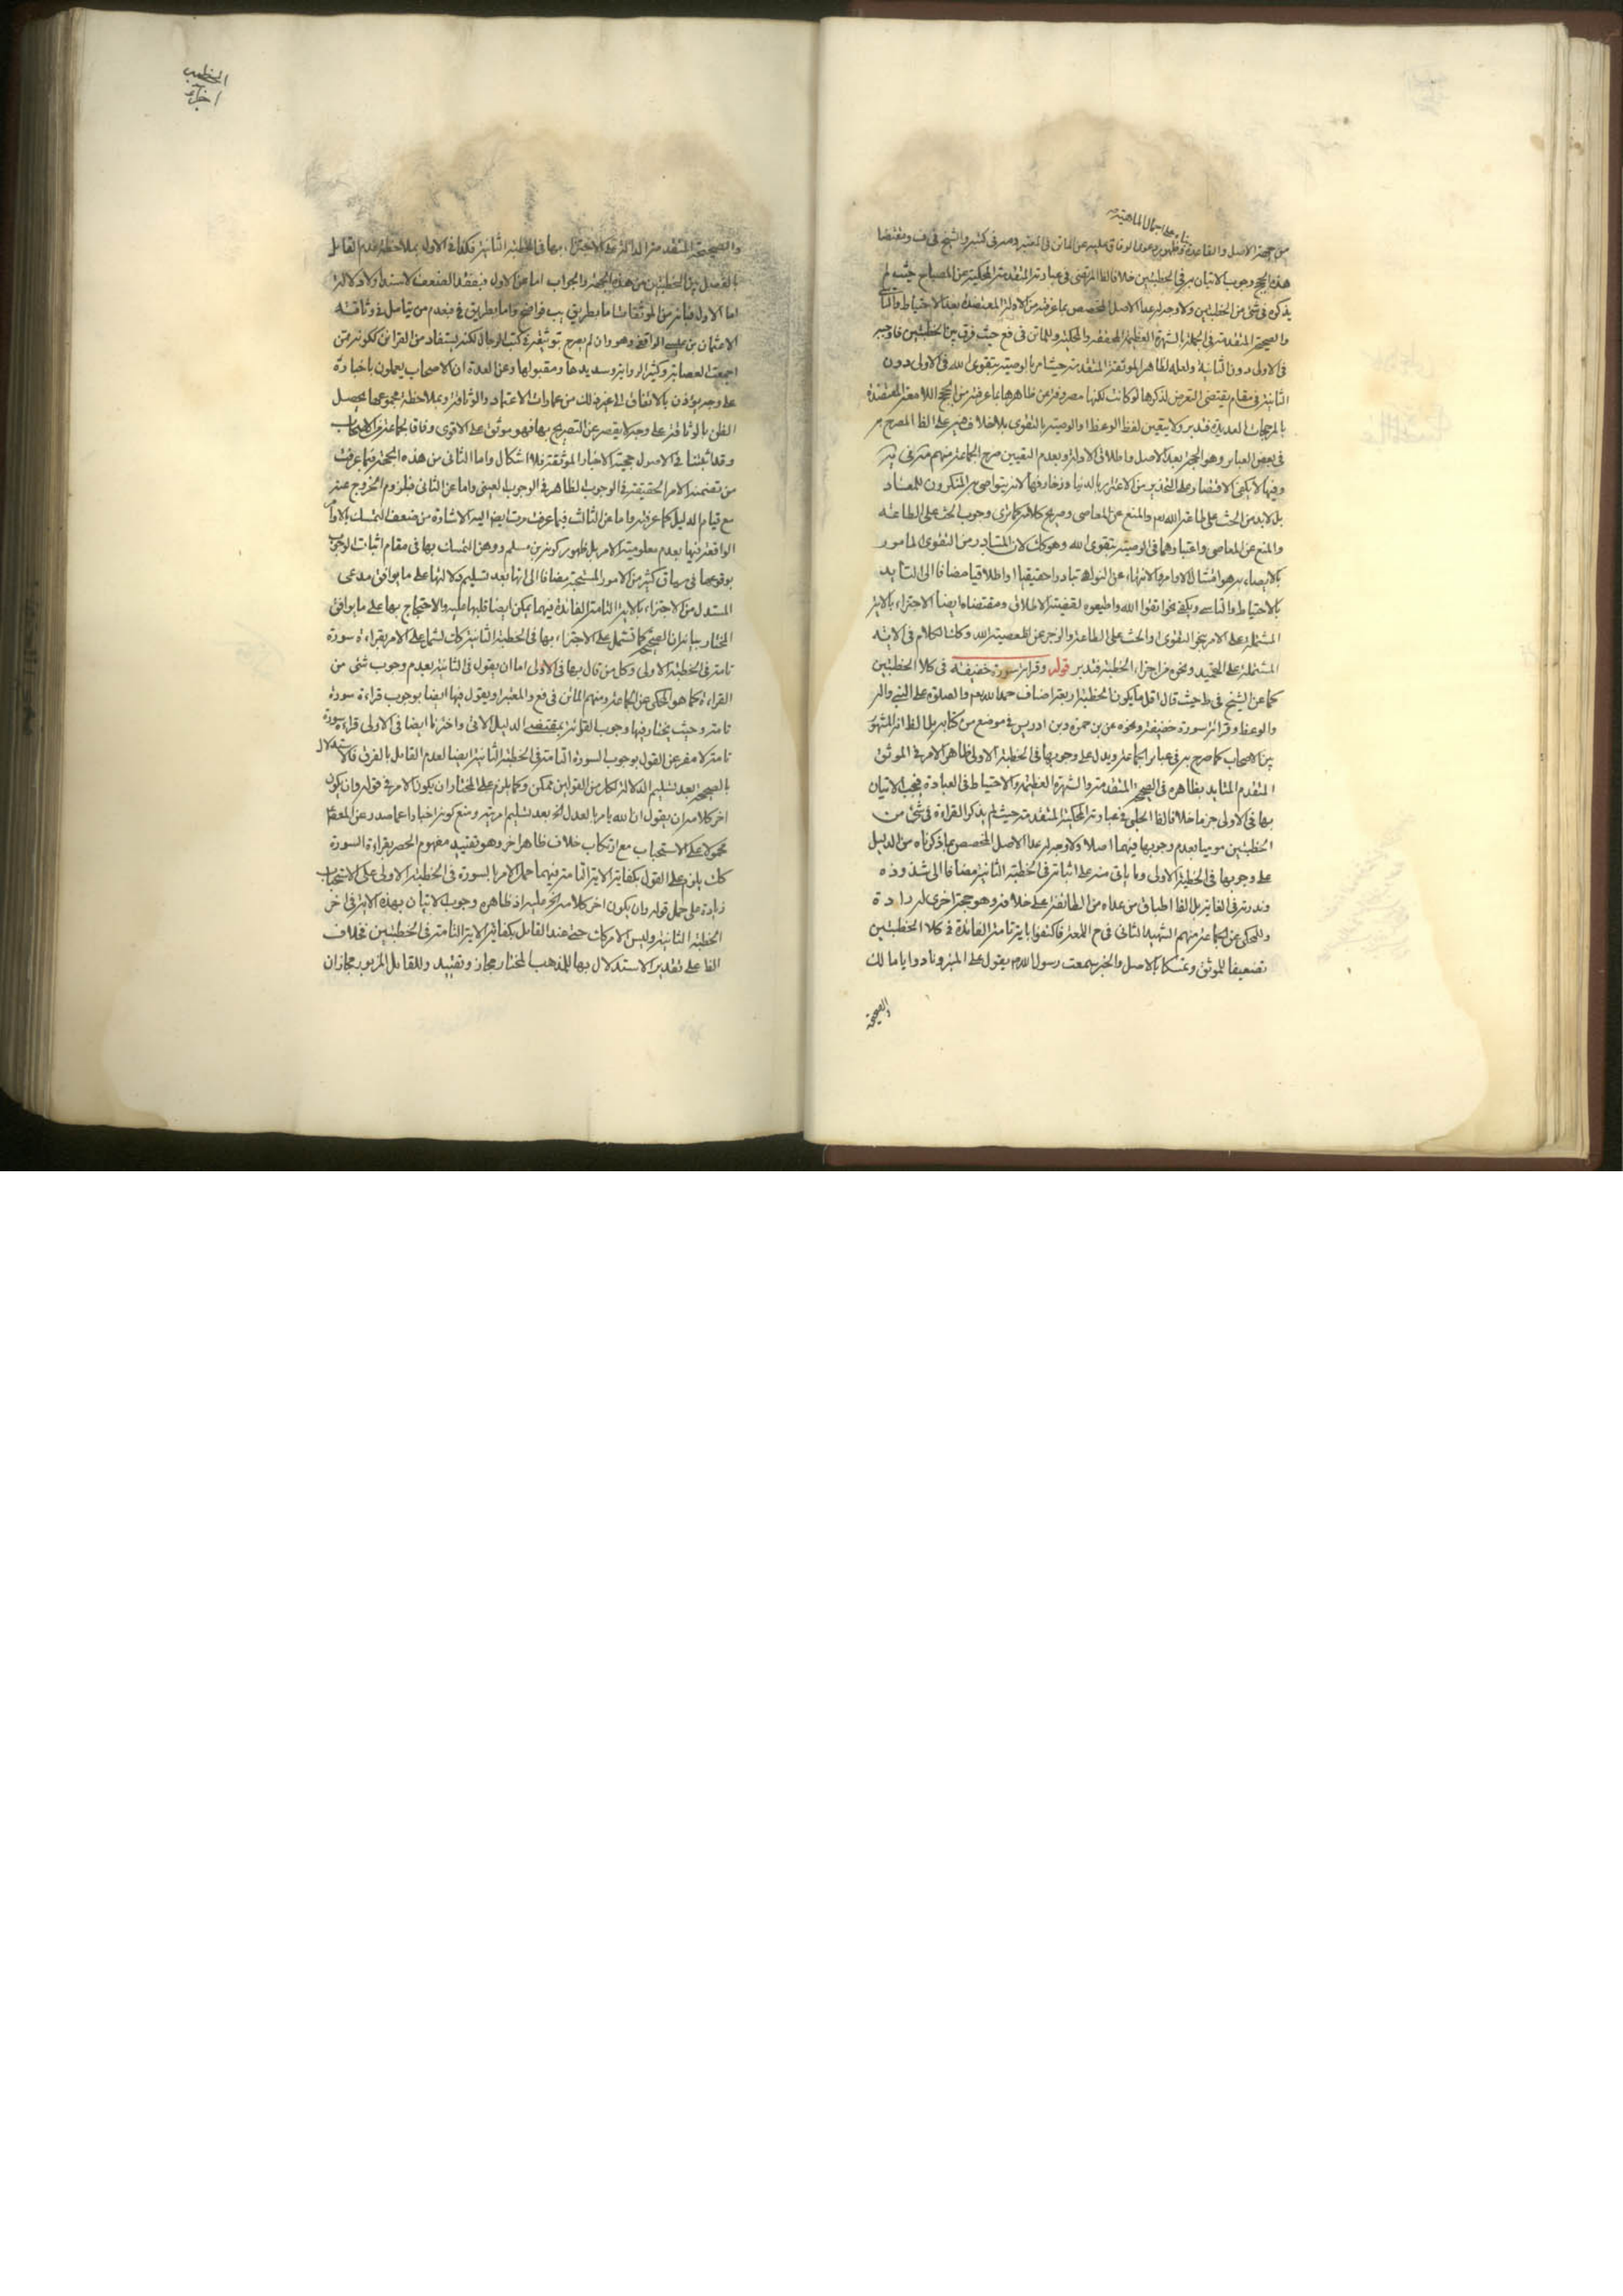 بناء على اجمال الماهية
من جهة الاصل والقاعدة وظهور دعوى الوفاق عليه عن الماتن في المعتبر وصر في كثير والشيخ في ف ومقتضا
هذه الحجج وجوب الاتيان بر في الخطبتين خلافا لظا المرتضى في عبادته المتقدمة المحكية عن المصباح حيث لم
يذكره في شئ من الخطبتين ولا وجه له عدا الاصل المخصص بما عرفته من الادلة المعتضدة بعد الاحتياط والتأسي
والصحيحة المتقدمة في الجملة بالشهرة العظيمة المحققة والمحكية وللماتن في فع حيث فرق بين الخطبتين فاوجبه
في الاولى دون الثانية ولعله لظاهر الموثقة المتقدمة حيث امر بالوصية بتقوى الله في الاولى دون
الثانية في مقام يقتضى التعرض لذكرها لو كانت لكنها مصروفة عن ظاهرها بما عرفته من الحجج اللامعة المعتضدة
بالمرجحات العديدة فتدبر ولا يتعين لفظ الوعظ او الوصية بالتقوى بلا خلاف صريح على الظا المصرح به
في بعض العبائر وهو الحجة بعد الاصل واطلاق الادلة وبعدم التعيين صرح الجماعة منهم
وفيها لا يكفى الاقتصار على التحذير من الاغترار بالدنيا وزخارفها لانه يتواصى به المنكرون للمعاد
بل لابد من الحث على طاعة الله تعم والمنع عن المعاصى وصريح كلامه كما ترى وجوب الحث على الطاعة
والمنع عن المعاصى واعتبارهما في الوصية بتقوى الله وهو كك لان المتبادر من التقوى المامور
بالايصاء به هو امتثال الاوامر والانتهاء عن النواهى تبادرا حقيقيا او اطلاقيا مضافا الى التأييد
بالاحتياط والتاسى ويكفى نحو اتقوا الله واطيعوه لقضية الاطلاق ومقتضاه ايضا الاجتزاء بالاية
المشتملة على الامر بنحو التقوى او الحث على الطاعة والزجر عن المعصية لله وكذا الكلام في الاية
المشتملة على التحميد ونحوه من اجزاء الخطبة فتدبر قوله وقرائة سورة خفيفة في كلا الخطبتين
كما عن الشيخ في ط حيث قال اقل ما يكون الخطبة اربعة اصناف حمد الله تعم والصلوة على النبي واله
والوعظ وقرائة سورة خفيفة ونحوه عن بن حمزة وبن ادريس في موضع من كتابه بل الظ انه المشهور
بين الاصحاب كما صرح به في عبائر الجماعة ويدل على وجوبها في الخطبة الاولى ظاهر الامر في الموثق
المتقدم المتايد بظاهره في الصحيح المتقدمة والشهرة العظيمة والاحتياط في العبادة فيجب الاتيان
بها في الاولى جزما خلافا لظا الحلبى في عبادته المحكية المتقدمة حيث لم يذكر القراءة في شئ من
الخطبتين موميا بعدم وجوبها فيهما اصلا ولا وجه له عدا الاصل المخصص بما ذكرناه من الدليل
على وجوبها في الخطبة الاولى وما ياتى منه على اثباته في الخطبة الثانية مضافا الى شذوذه
وندرته في الغاية بل الظا اطباق من عداه من الطائفة على خلافه وهو حجة اخرى لردا دة
والمحكى عن الجماعة منهم الشهيد الثانى في ح اللمعة فاكتفوا باية تامة الفائدة في كلا الخطبتين
تضعيفا للموثق وتمسكا بالاصل والخبر سمعت رسول الله ص يقول على المنبر ونادوا يا مالك
والصحيحة
الخطيب
اخذ
والصحيحة المتقدمة الدالة على الاجتزاء بها في الخطبة الثانية فكذا في الاولى بملاحظة عدم القائل
بالفصل بين الخطبتين من هذه الجهة والجواب اما عن الاول فبفقد الضعف لا سندا ولا دلالة
اما الاول فبانه من الموثقات اما بطريق يب فواضح واما بطريق في فبعدم من يتامل في وثاقته
الا عثمان بن عيسى الواقفي وهو وان لم يصرح بتوثيقه في كتب الرجال لكنه يستفاد من القرائن ككونه ممن
اجمعت العصابة وكثير الرواية وسديدها ومقبولها وعن العدة ان الاصحاب يعملون باخباره
على وجه يؤذن بالاتفاق الى غير ذلك من امارات الاعتماد والوثاقة وبملاحظة مجموعها يحصل
الظن بالوثاقة على وجه لا يقصر عن التصريح بها فهو موثق على الاقوى وفاقا لجماعة من الاصحاب
وقد اثبتنا في الاصول حجية الاخبار الموثقة فلا اشكال واما الثانى من هذه الجهة فبما عرفت
من تضمنه الامر الحقيقة في الوجوب الظاهر في الوجوب العينى واما عن الثانى فبلزوم الخروج عنه
مع قيام الدليل كما عرفته واما عن الثالث فبما عرفت مرتا بعد اليه الاشارة من ضعف التمسك بالاوامر
الواقعة فيها بعدم معلومية الامر بل ظهور كونه بن مسلم ووهن التمسك بها في مقام اثبات الوجوب
بوقوعها في سياق كثير من الامور المستحبة مضافا الى انها بعد تسليم دلالتها على ما يوافق مدعى
المستدل من الاجتزاء بالاية التامة الفائدة فيهما يمكن ايضا قلبها عليه والاحتجاج بها على ما يوافق
المختار ببيان ان الصحيح كما تشتمل على الاجتزاء بها في الخطبة الثانية كك تشتمل على الامر بقراءة سورة
تامة في الخطبة الاولى وكل من قال بها في الاولى اما ان يقول في الثانية بعدم وجوب شئ من
القراءة كما هو المحكى عن الجماعة ومنهم الماتن في فع والمعتبر او يقول فيها ايضا بوجوب قراءة سورة
تامة وحيث يختار فيها وجوب القرائة بمقتضى الدليل الاتى واخترنا ايضا في الاولى قراءة سورة
تامة لا مفر عن القول بوجوب السورة التامة في الخطبة الثانية ايضا لعدم القائل بالفرق فالاستدلال
بالصحيح بعد تسليم الدلالة لكل من القولين ممكن وكما يلزم على المختار ان يكون الامر في قوله وان يكون
اخر كلامه ان يقول ان الله يامر بالعدل الخ بعد تسليم امريته ومنع كونه اخبارا عما صدر عن المعصوم
محمولا على الاستحباب مع ارتكاب خلاف ظاهر اخر وهو تقييد مفهوم الحصر بقراءة السورة
كك يلزم على القول بكفاية الاية التامة فيهما حمل الامر بالسورة في الخطبة الاولى على الاستحباب
زيادة على حمل قوله وان يكون اخر كلامه الخ عليه اذ ظاهره وجوب الاتيان بهذه الاية في اخر
الخطبة الثانية وليس الامر كك حتى عند القائل بكفاية الاية التامة في الخطبتين فخلاف
الظا على تقدير الاستدلال بها للمذهب المختار مجاز وتقييد وللقائل المزبور مجازان